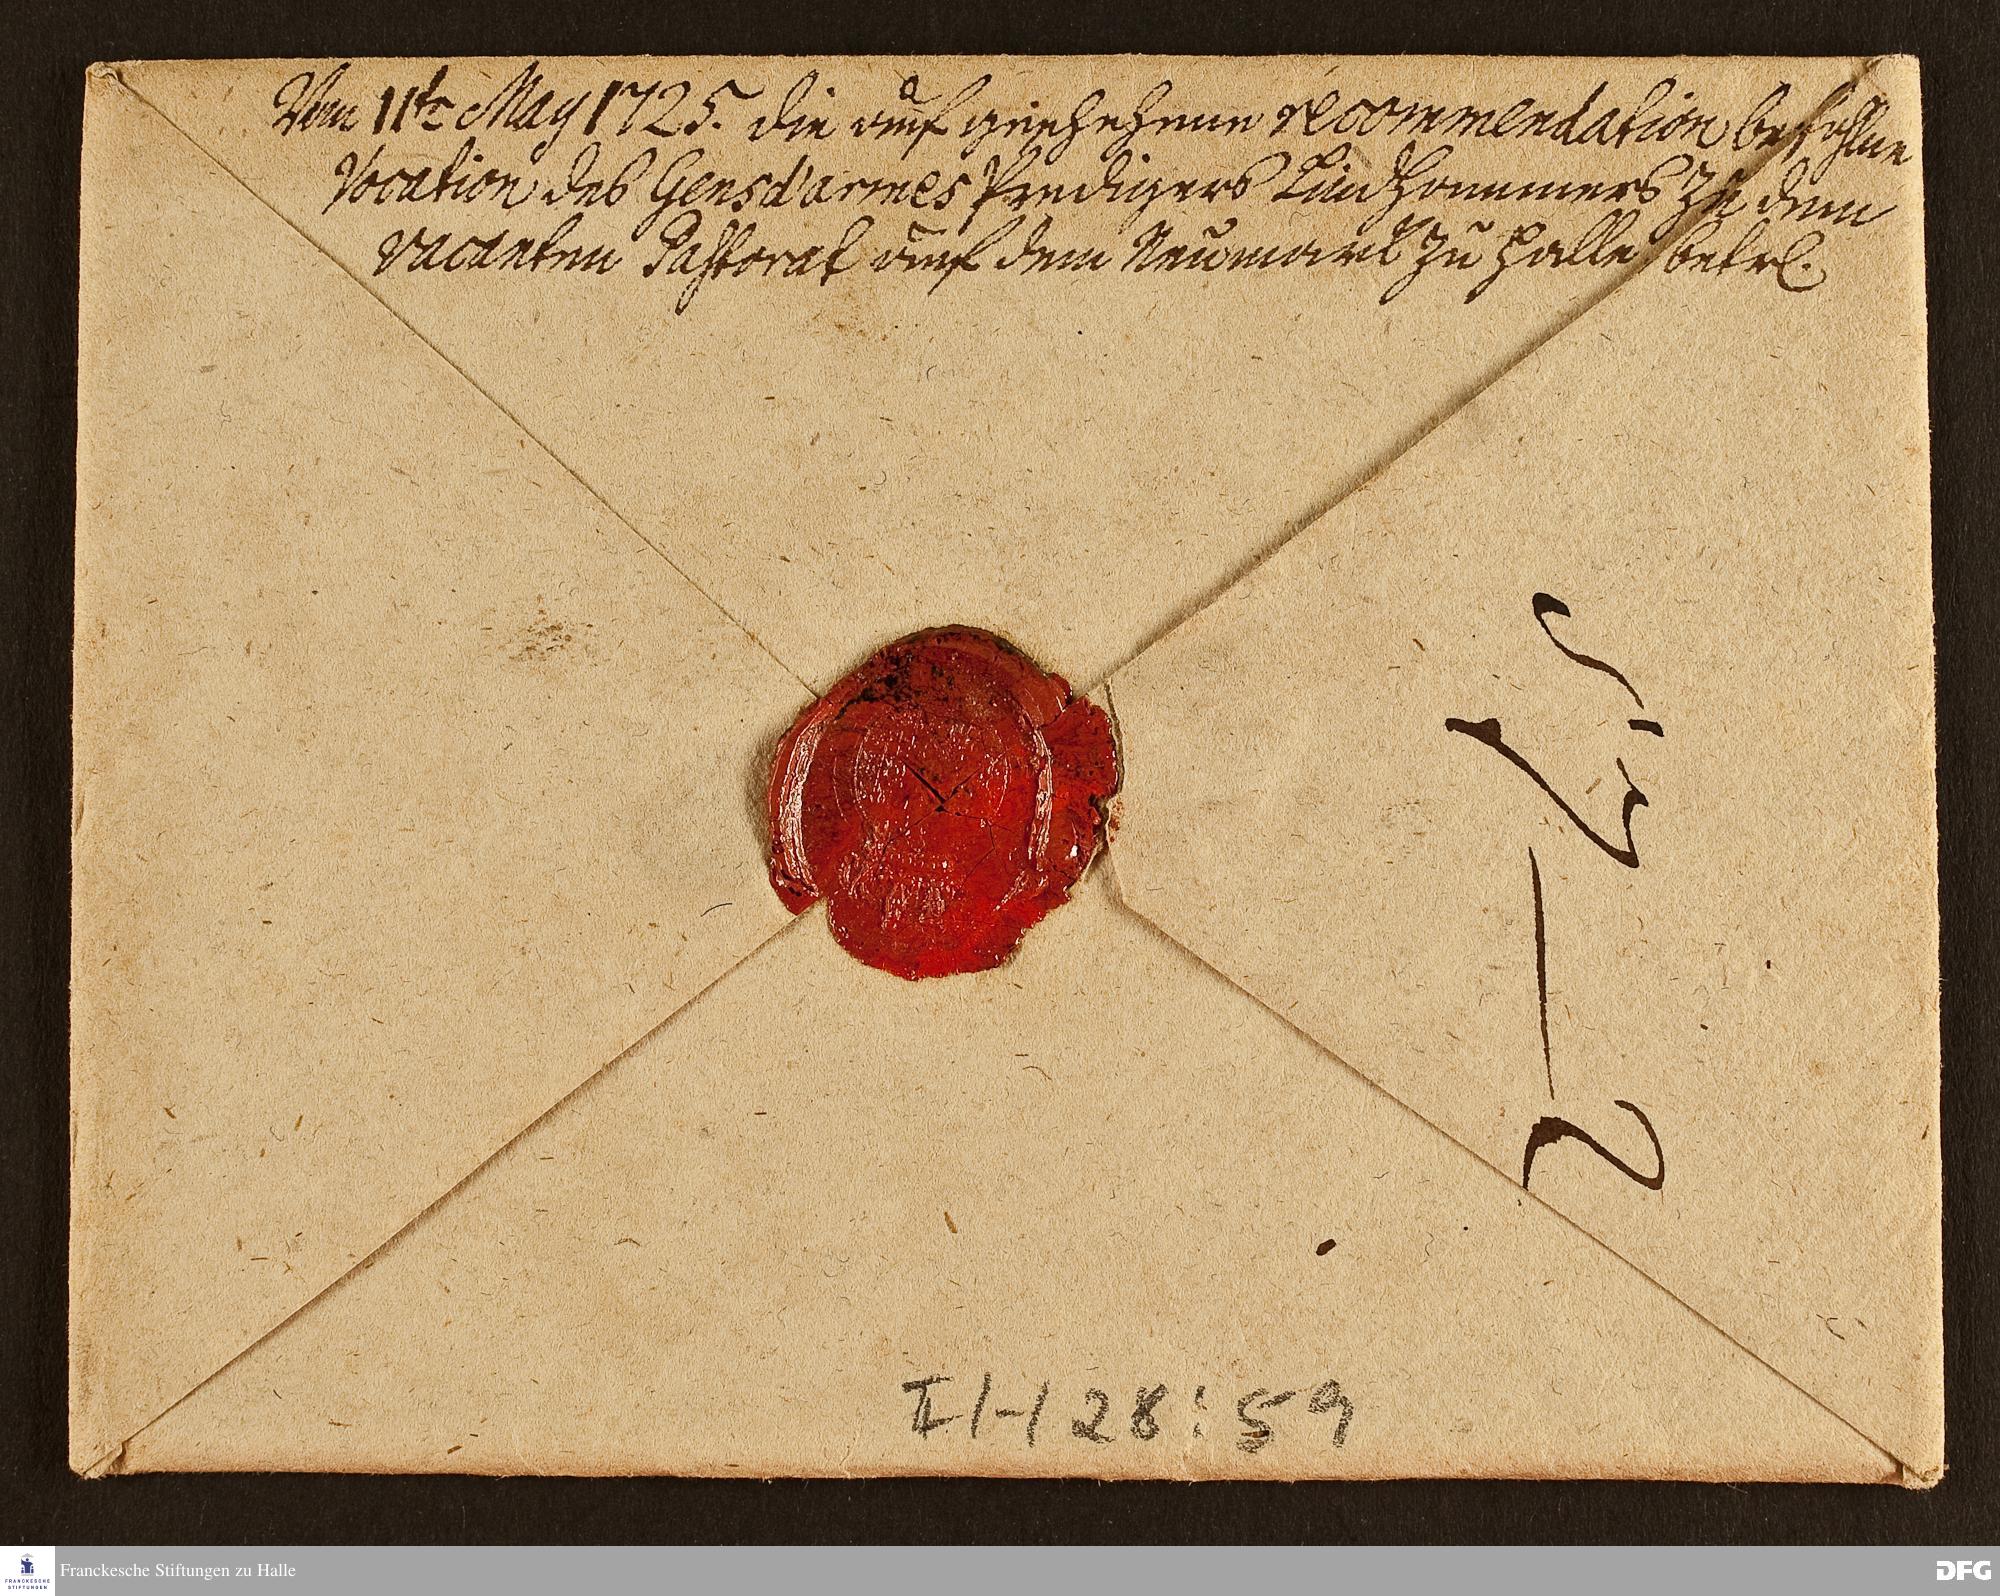 Vom 11t May 1725. die auf geschehene recommendation befohlne
Vocation des Gensd'armes Predigers Lüdh zu dem
vacanten Pastorat auf dem Neumarck zu Halle betrl.
I/-/28:59
FRANCKESCHE
STIFTUNGEN
Franckesche Stiftungen zu Halle
DFG